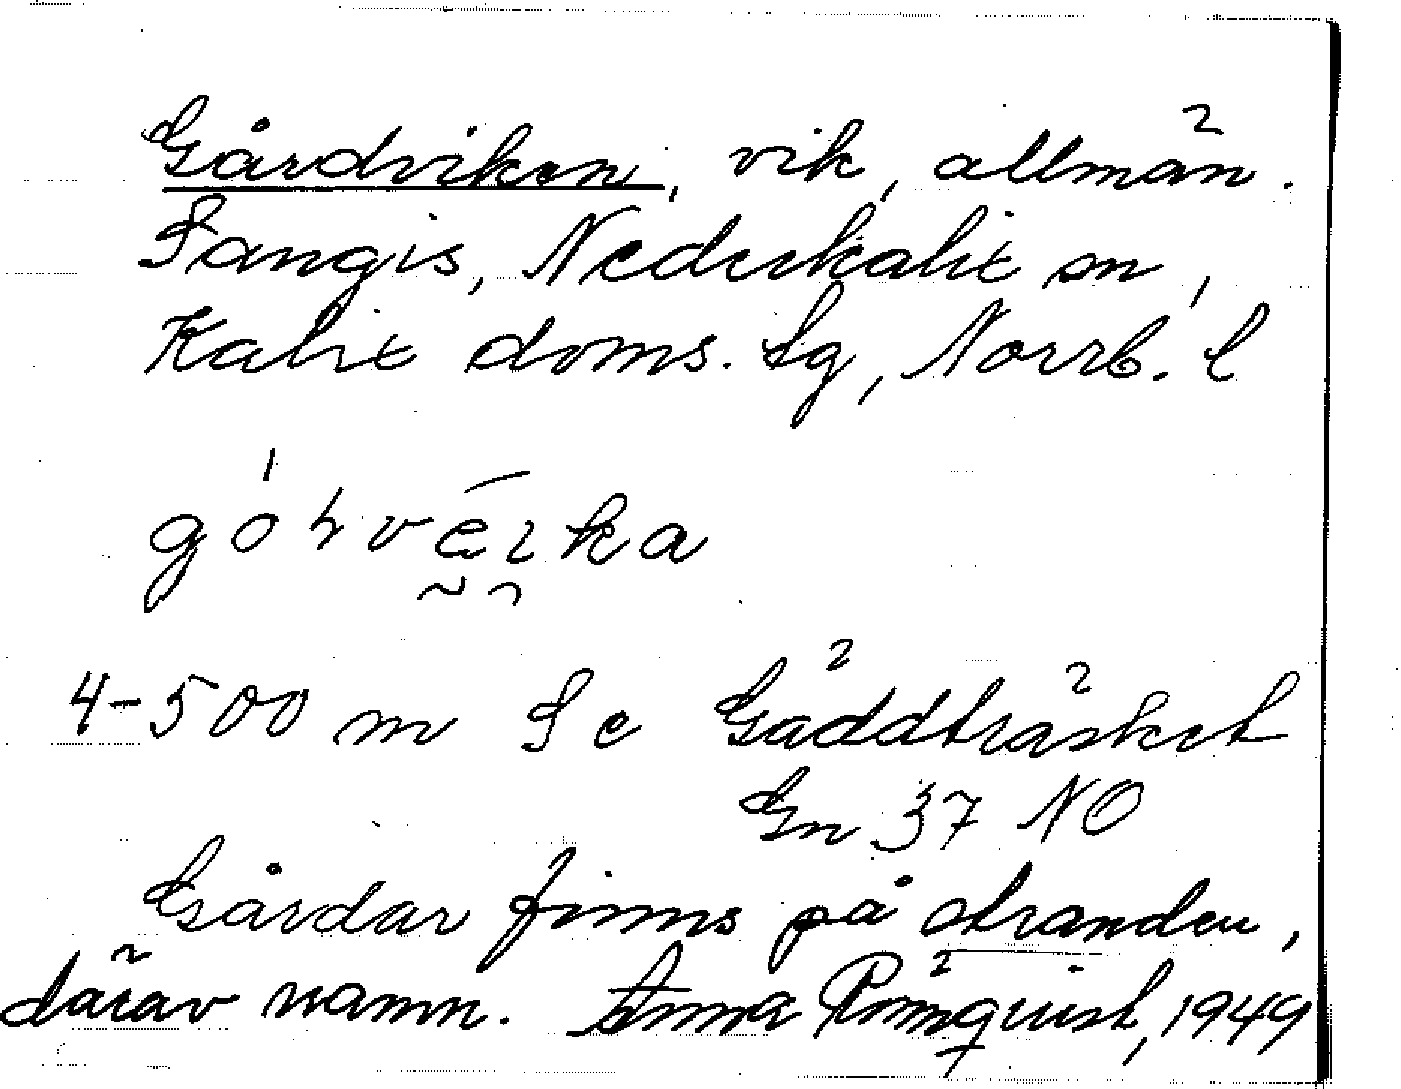 Gårdviken, vik, allmän.
Sangis, Nederkalix sn,
Kalix doms. sg, Norrb. l
4-500 m S c Gäddträsket
Gn 37 NO
Gårdar finns på stranden,
därav namn. Anna Rönnquist, 1949